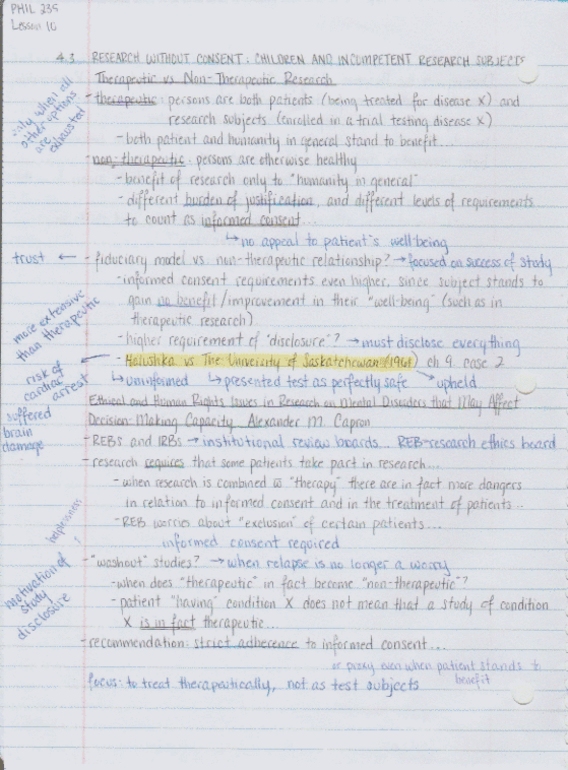 PHIL 235
Lesson 10
4.3 RESEARCH WITHOUT CONSENT: CHILDREN AND INCOMPETENT RESEARCH SUBJECTS
Therapeutic vs Non-Therapeutic Research
only when all
other options
are
exhausted
- therapeutic: persons are both patients (being treated for disease X) and
research subjects (enrolled in a trial testing disease X)
- both patient and humanity in general stand to benefit...
- non-therapeutic: persons are otherwise healthy
- benefit of research only to "humanity in general"
- different burden of justification, and different levels of requirements
to count as informed consent...
↳ no appeal to patient's well-being
trust ← - fiduciary model vs non-therapeutic relationship? → focused on success of study
- informed consent requirements even higher, since subject stands to
gain no benefit/improvement in their "well-being" (such as in
therapeutic research)
more extensive
than therapeutic
- higher requirement of "disclosure"? → must disclose everything
- Halushka vs The University of Saskatchewan (1965) ch 4 case 2
risk of
cardiac
arrest
↳ uninformed ↳ presented test as perfectly safe → upheld
suffered
brain
damage
Ethical and Human Rights Issues in Research on Mental Disorders that May Affect
Decision-Making Capacity Alexander M. Capron
- REBs and IRBs → institutional review boards... REB-research ethics board
- research requires that some patients take part in research...
- when research is combined w "therapy" there are in fact more dangers
in relation to informed consent and in the treatment of patients..
- REB worries about "exclusion" of certain patients...
informed consent required
hopelessness
- "washout" studies? → when relapse is no longer a worry
motivation of
study
disclosure
!
- when does "therapeutic" in fact become "non-therapeutic"?
- patient "having" condition X does not mean that a study of condition
X is in fact therapeutic...
- recommendation: strict adherence to informed consent...
or proxy even when patient stands to
benefit
focus: to treat therapeutically, not as test subjects